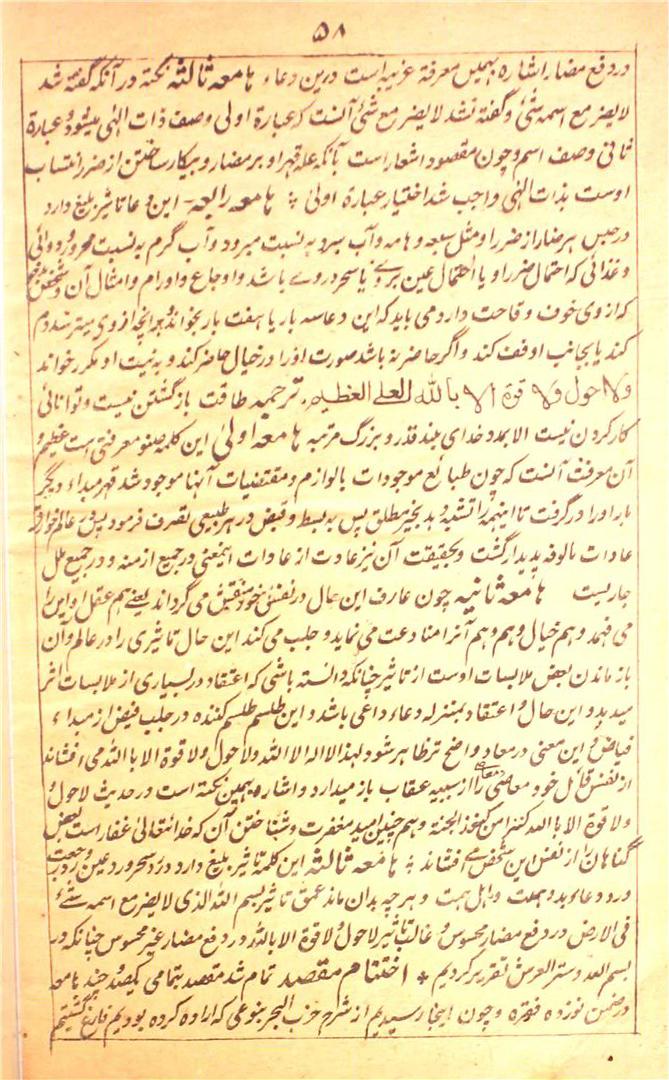 ۵۸
در دفع مضار اشاره بهمین معرفة عزیبه است درین دعاء هامعه ثالثه نکته در آنکه گفته شد
لا یضر مع اسمه شئ و گفته نشد لا یضر مع شئ آنست که عبارة اولی وصف ذات الهی میشود و عبارة
ثانی وصف اسم و چون مقصود اشعار است بآنکه علة قهر او بر مضار و بیکار ساختن از ضرر انتساب
اوست بذات الهی واجب شد اختیار عبارة اولی هامعه رابعه این دعا تاثیر بلیغ دارد
در حبس هر ضار از ضرر او مثل سبعه و هامه و آب سرد به نسبت مبرود و آب گرم به نسبت محرور و دوائی
و غذائی که احتمال ضرر او یا احتمال عین بروے یا سحر دروے باشد و اوجاع و اورام و امثال آن و شخص
که از وی خوف وقاحت دارد می باید که این دعا سه بار یا هفت بار بخواند و بر آنچه از وی میترسد دم
کند یا بجانب او نفث کند و اگر حاضر نه باشد صورت او را در خیال حاضر کند و به نیت او مکرر خواند
ولا حول ولا قوة الا بالله العلی العظیم ترجمه طاقت بازگشتن نیست و توانائی
کار کردن نیست الا بمدد خدای بلند قدر و بزرگ مرتبه هامعه اولی این کلمه صفو معرفتی است عظیم و
آن معرفت آنست که چون طبائع موجودات بالوازم و مقتضیات آنها موجود شد قهر مبداء دیگر
باره او را در گرفت تا اینهمه را تشبه و بد بخیر مطلق پس به بسط و قبض در هر طبیعی تصرف فرمود پس در عالم خوارق
عادات مالوفه پدیدار گشت و بحقیقت آن نیز عادت از عادات اینمعنی در جمیع ازمنه و در جمیع ملل
جاریست هامعه ثانیه چون عارف این حال در نفس خود متیقن می گرداند یعنے هم عقل او این را
می فهمد و هم خیال و هم وهم آنرا منادعت می نماید و جلب می کند این حال تاثیری را در عالم و آن
باز ماندن بعض ملابسات اوست از تاثیر چنانکه دانسته باشی که اعتقاد در بسیاری از ملابسات اثر
میدهد و این حال و اعتقاد بمنزله دعاء داعی باشد و این طلسم طلسم کننده در جلب فیض از مبداء
فیاض و این معنی در معاد واضح تر ظاهر شود لهذا لا اله الا الله ولا حول ولا قوة الا بالله می افشاند
از نفس قائل خود معاصی را از سببیه عقاب باز میدارد و اشاره بهمین نکته است در حدیث لا حول و
ولا قوة الا بالله کنز من کنوز الجنة و هم چنین امید مغفرت و شناختن آن که خدا تعالی غفار است بعض
گناهان را از نفس این شخص مے افشاند هامعه ثالثه این کلمه تاثیر بلیغ دارد در رد سحر و رد عین و رد رجعت
و رد دعاء بد و همت اهل همت و هر چه بدان ماند عمق تاثیر بسم الله الذی لا یضر مع اسمه شئ
فی الارض در دفع مضار محسوس و غالب تاثیر لا حول ولا قوة الا بالله در دفع مضار غیر محسوس چنانکه در
بسم الله و ستر العرش تقریر کردیم * اختتام مقصد تمام شد مقصد بتمامی یکصد و چند هامعه
در ضمن نوزده فقره و چون اینجا رسیدیم از شرح حزب البحر بنوعی که اراده کرده بودیم فارغ گشتیم